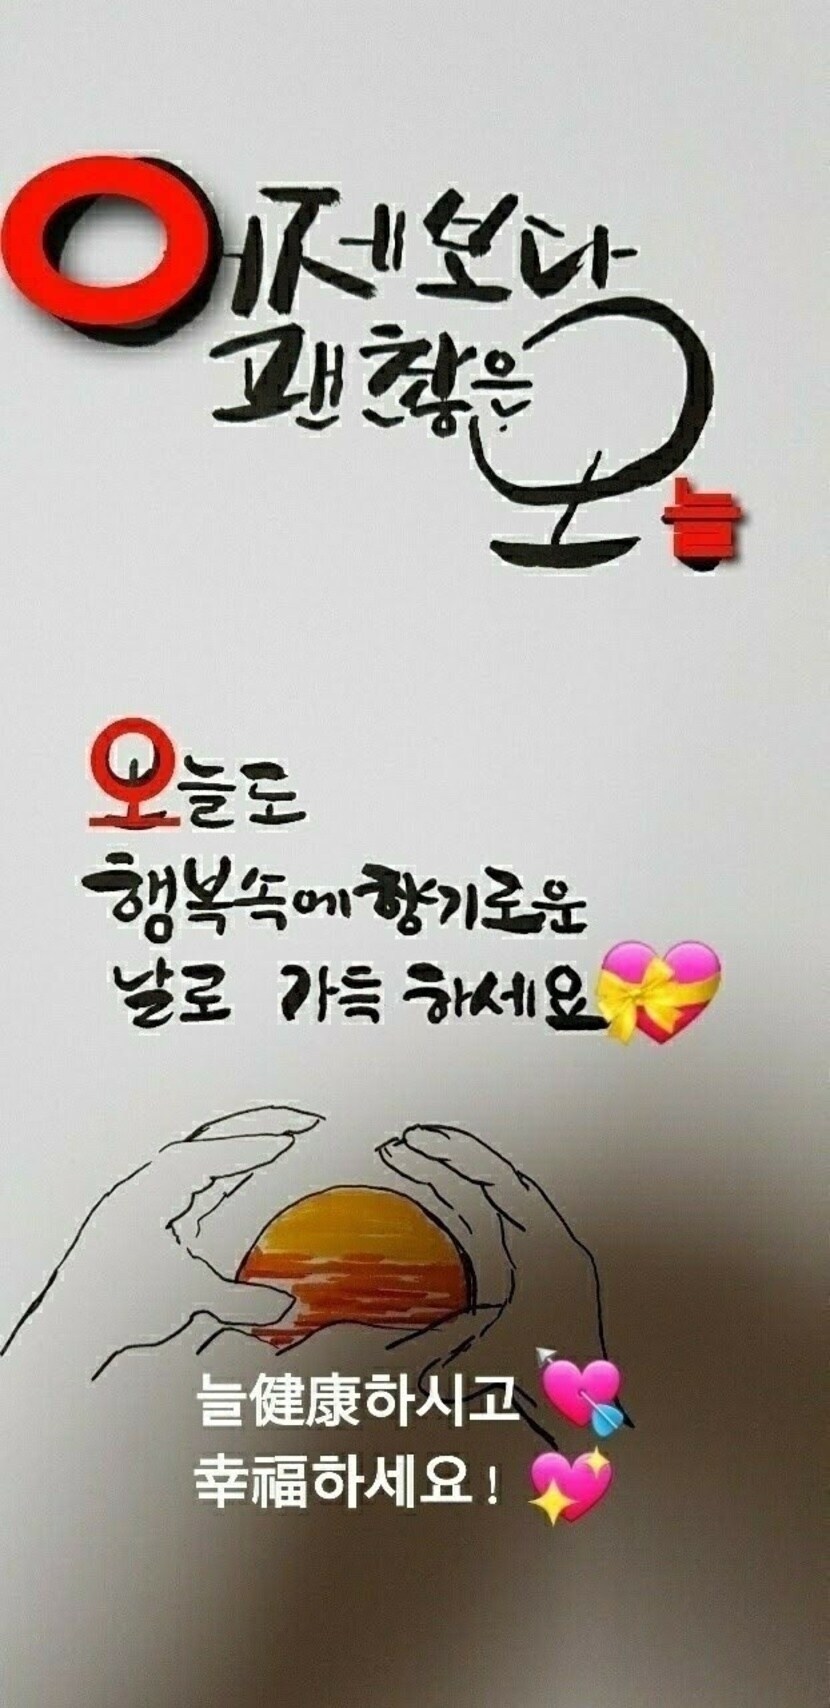 어제보다
괜찮은
오늘
오늘도
행복속에향기로운
날로 가득 하세요
늘健康하시고
幸福하세요!